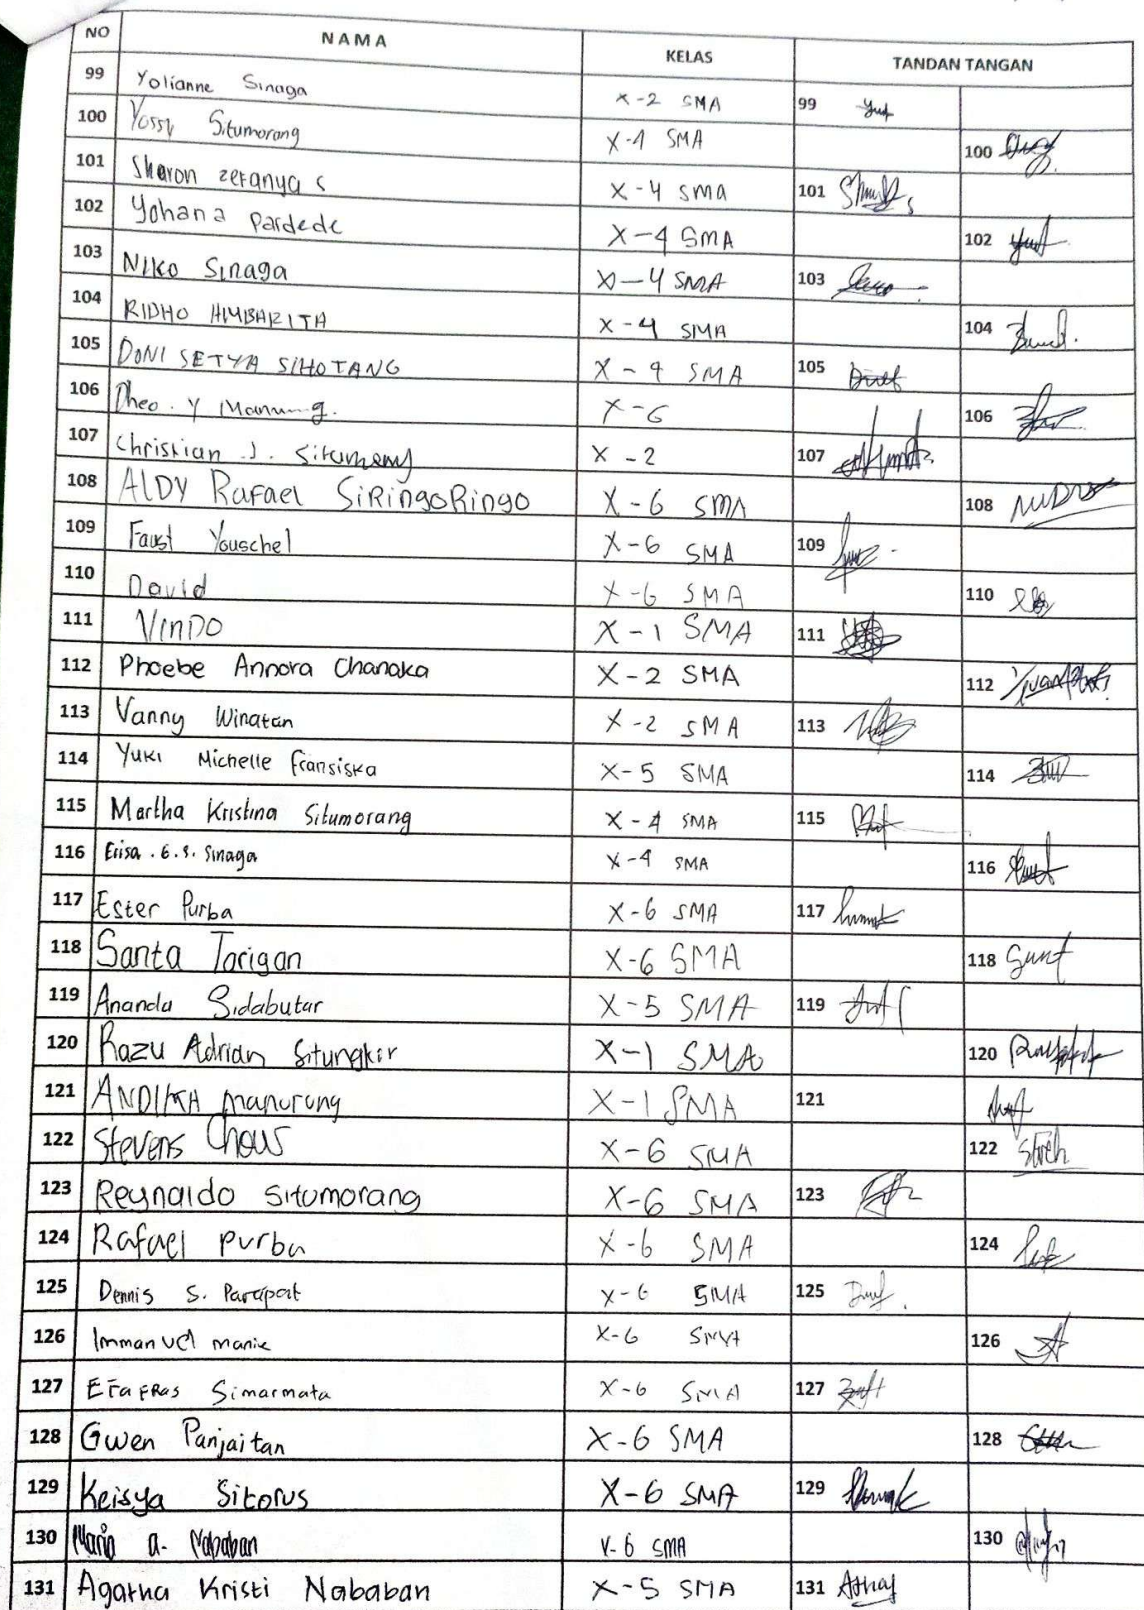 NO NAMA KELAS TANDAN TANGAN
99 Yolianne Sinaga X-2 SMA 99
100 Yossy Situmorang X-1 SMA 100
101 Sharon zefanya s X-4 SMA 101
102 Yohana Pardede X-4 SMA 102
103 Niko Sinaga X-4 SMA 103
104 RIDHO HUMBARITA X-4 SMA 104
105 DONI SETYA SIHOTANG X-4 SMA 105
106 Dheo. Y X-6 106
107 Christian J. X-2 107
108 ALDY Rafael SiRingoRingo X-6 SMA 108
109 Faust Youschel X-6 SMA 109
110 David X-6 SMA 110
111 VINDO X-1 SMA 111
112 Phoebe Annora Chanaka X-2 SMA 112
113 Vanny Winatan X-2 SMA 113
114 Yuki Michelle Fransiska X-5 SMA 114
115 Martha Kristina Situmorang X-4 SMA 115
116 Erisa . G.S. Sinaga X-4 SMA 116
117 Ester Purba X-6 SMA 117
118 Santa Tarigan X-6 SMA 118
119 Ananda Sidabutar X-5 SMA 119
120 Razu Adrian Situngkir X-1 SMA 120
121 ANDIKA Manurung X-1 SMA 121
122 Stevens Chows X-6 SMA 122
123 Reynaldo Situmorang X-6 SMA 123
124 Rafael purba X-6 SMA 124
125 Dennis S. Parapat X-6 SMA 125
126 Immanuel manik X-6 SMA 126
127 EFaFRas Simarmata X-6 SMA 127
128 Gwen Panjaitan X-6 SMA 128
129 Keisya Sitorus X-6 SMA 129
130 Maria a. Nababan X-6 SMA 130
131 Agatha Kristi Nababan X-5 SMA 131